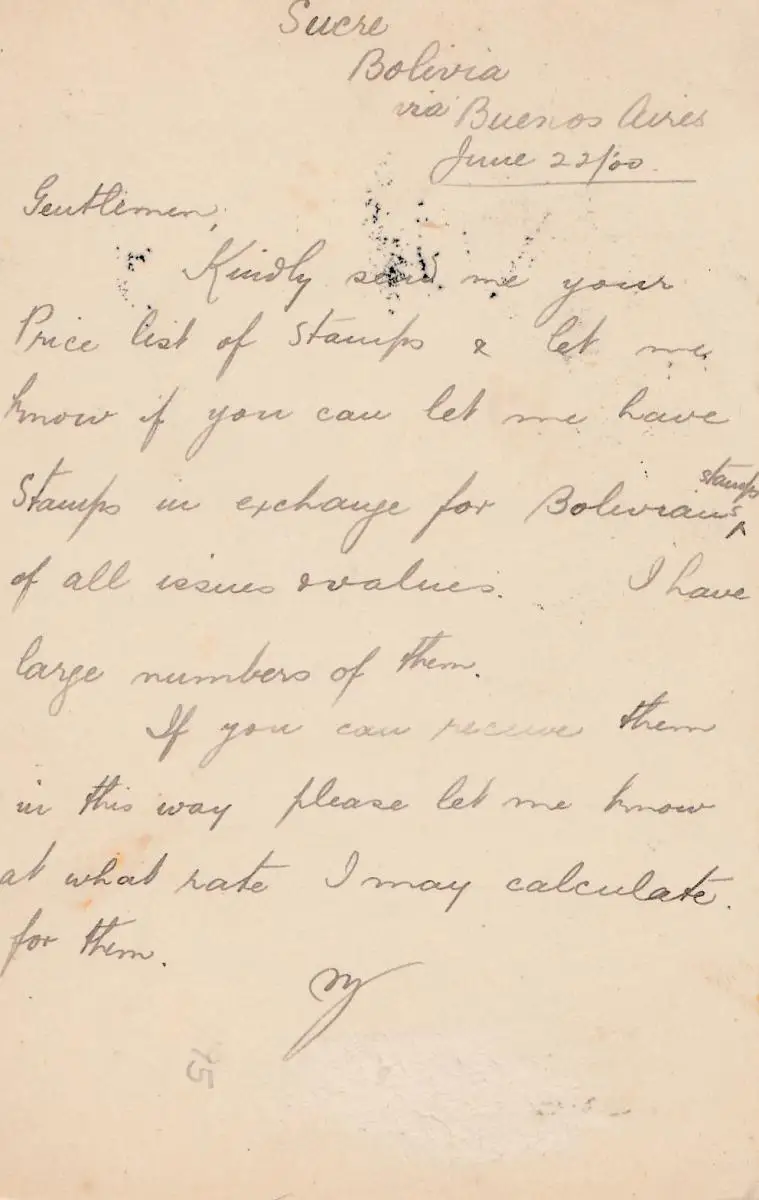 Sucre
Bolivia
via Buenos Aires
June 22/00.
Gentlemen,
Kindly send me your
Price list of Stamps & let me
know if you can let me have
Stamps in exchange for Bolivians stamps
of all issues & values. I have
large numbers of them.
If you can receive them
in this way please let me know
at what rate I may calculate.
for them.
15